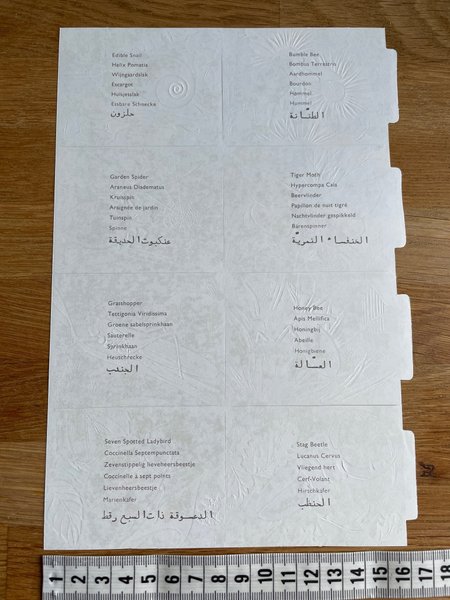 Edible Snail
Helix Pomatia
Wijngaardslak
Escargot
Huisjesslak
Essbare Schnecke
حلزون
Bumble Bee
Bombus Terrastris
Aardhommel
Bourdon
Hommel
Hummel
الطنّانة
Garden Spider
Araneus Diadematus
Kruisspin
Araignée de jardin
Tuinspin
Spinne
عنكبوت الحديقة
Tiger Moth
Hypercompa Caia
Beervlinder
Papillon de nuit tigré
Nachtvlinder gespikkeld
Bärenspinner
الخنفساء النمريّة
Grasshopper
Tettigonia Viridissima
Groene sabelsprinkhaan
Sauterelle
Sprinkhaan
Heuschrecke
الجندب
Honey Bee
Apis Mellifica
Honingbij
Abeille
Honigbiene
العسّالة
Seven Spotted Ladybird
Coccinella Septempunctata
Zevenstippelig lieveheersbeestje
Coccinelle à sept points
Lievenheersbeestje
Marienkäfer
الدعسوقة ذات السبع رقط
Stag Beetle
Lucanus Cervus
Vliegend hert
Cerf-Volant
Hirschkäfer
الحنظب
1 2 3 4 5 6 7 8 9 10 11 12 13 14 15 16 17 18